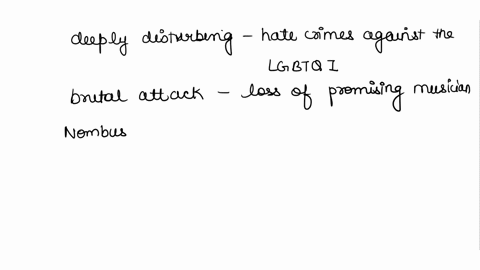 deeply disturbing – hate crimes against the
LGBTQI
brutal attack – loss of promising musician
Nombus